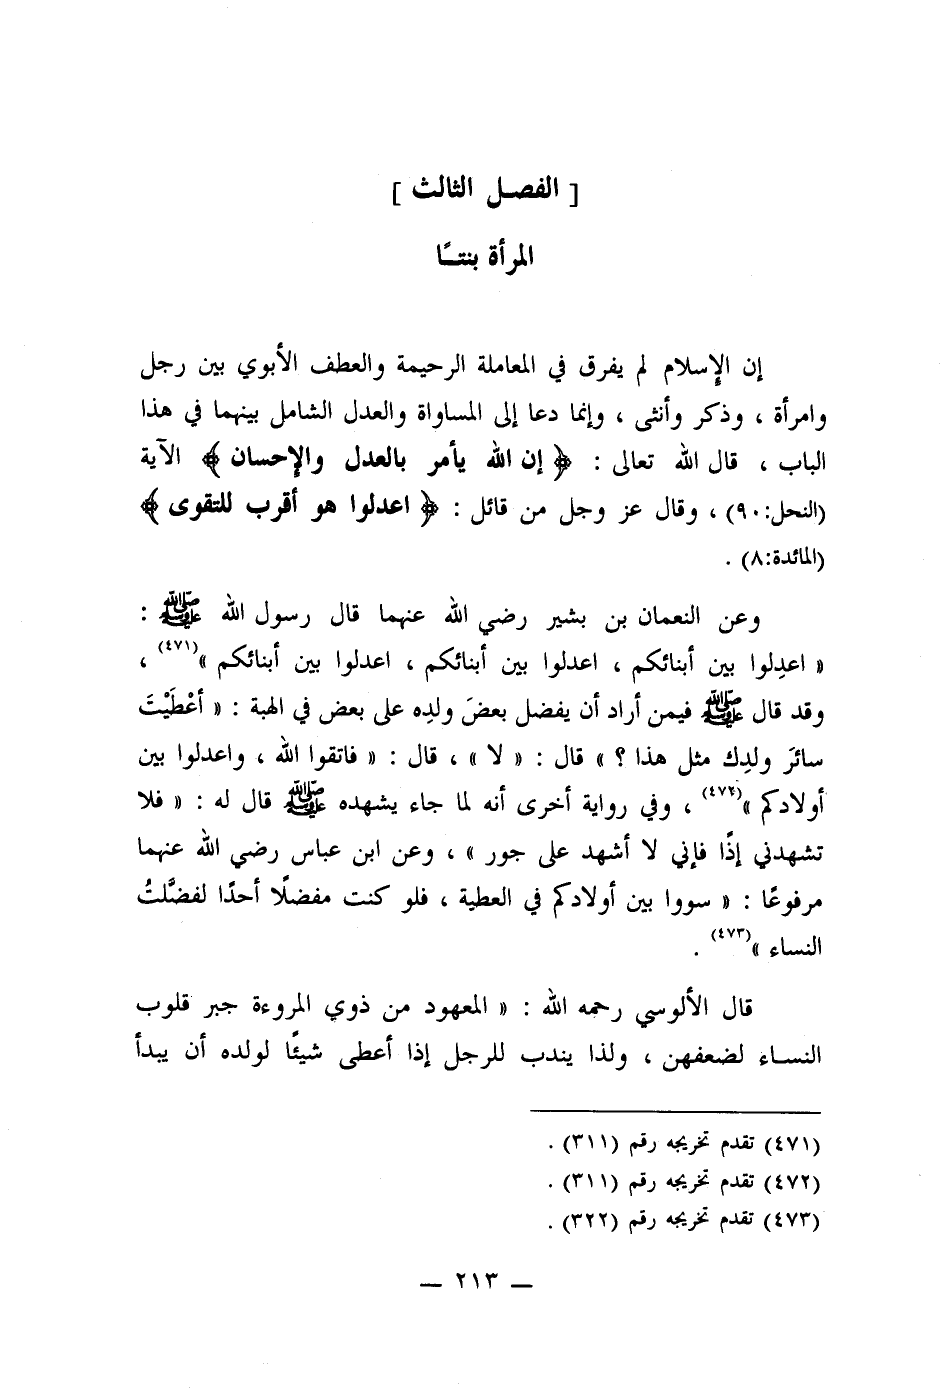 [ الفصل الثالث ]
المرأة بنتــًا
إن الإسلام لم يفرق في المعاملة الرحيمة والعطف الأبوي بين رجل
وامرأة ، وذكر وأنثى ، وإنما دعا إلى المساواة والعدل الشامل بينهما في هذا
الباب ، قال الله تعالى : ﴿ إن الله يأمر بالعدل والإحسان ﴾ الآية
(النحل:٩٠) ، وقال عز وجل من قائل : ﴿ اعدلوا هو أقرب للتقوى ﴾
(المائدة:٨) .
وعن النعمان بن بشير رضي الله عنهما قال رسول الله ﷺ :
« اعدِلوا بين أبنائكم ، اعدلوا بين أبنائكم ، اعدلوا بين أبنائكم »(٤٧١) ،
وقد قال ﷺ فيمن أراد أن يفضل بعضَ ولدِه على بعض في الهبة : « أعْطَيْتَ
سائرَ ولدِك مثل هذا ؟ » قال : « لا » ، قال : « فاتقوا الله ، واعدلوا بين
أولادكم »(٤٧٢) ، وفي رواية أخرى أنه لما جاء يشهده ﷺ قال له : « فلا
تشهدني إذًا فإني لا أشهد على جور » ، وعن ابن عباس رضي الله عنهما
مرفوعًا : « سووا بين أولادكم في العطية ، فلو كنت مفضلًا أحدًا لفضَّلتُ
النساء »(٤٧٣) .
قال الألوسي رحمه الله : « المعهود من ذوي المروءة جبر قلوب
النســاء لضعفهن ، ولذا يندب للرجل إذا أعطى شيئًا لولده أن يبدأ
(٤٧١) تقدم تخريجه رقم (٣١١) .
(٤٧٢) تقدم تخريجه رقم (٣١١) .
(٤٧٣) تقدم تخريجه رقم (٣٢٢) .
— ٢١٣ —